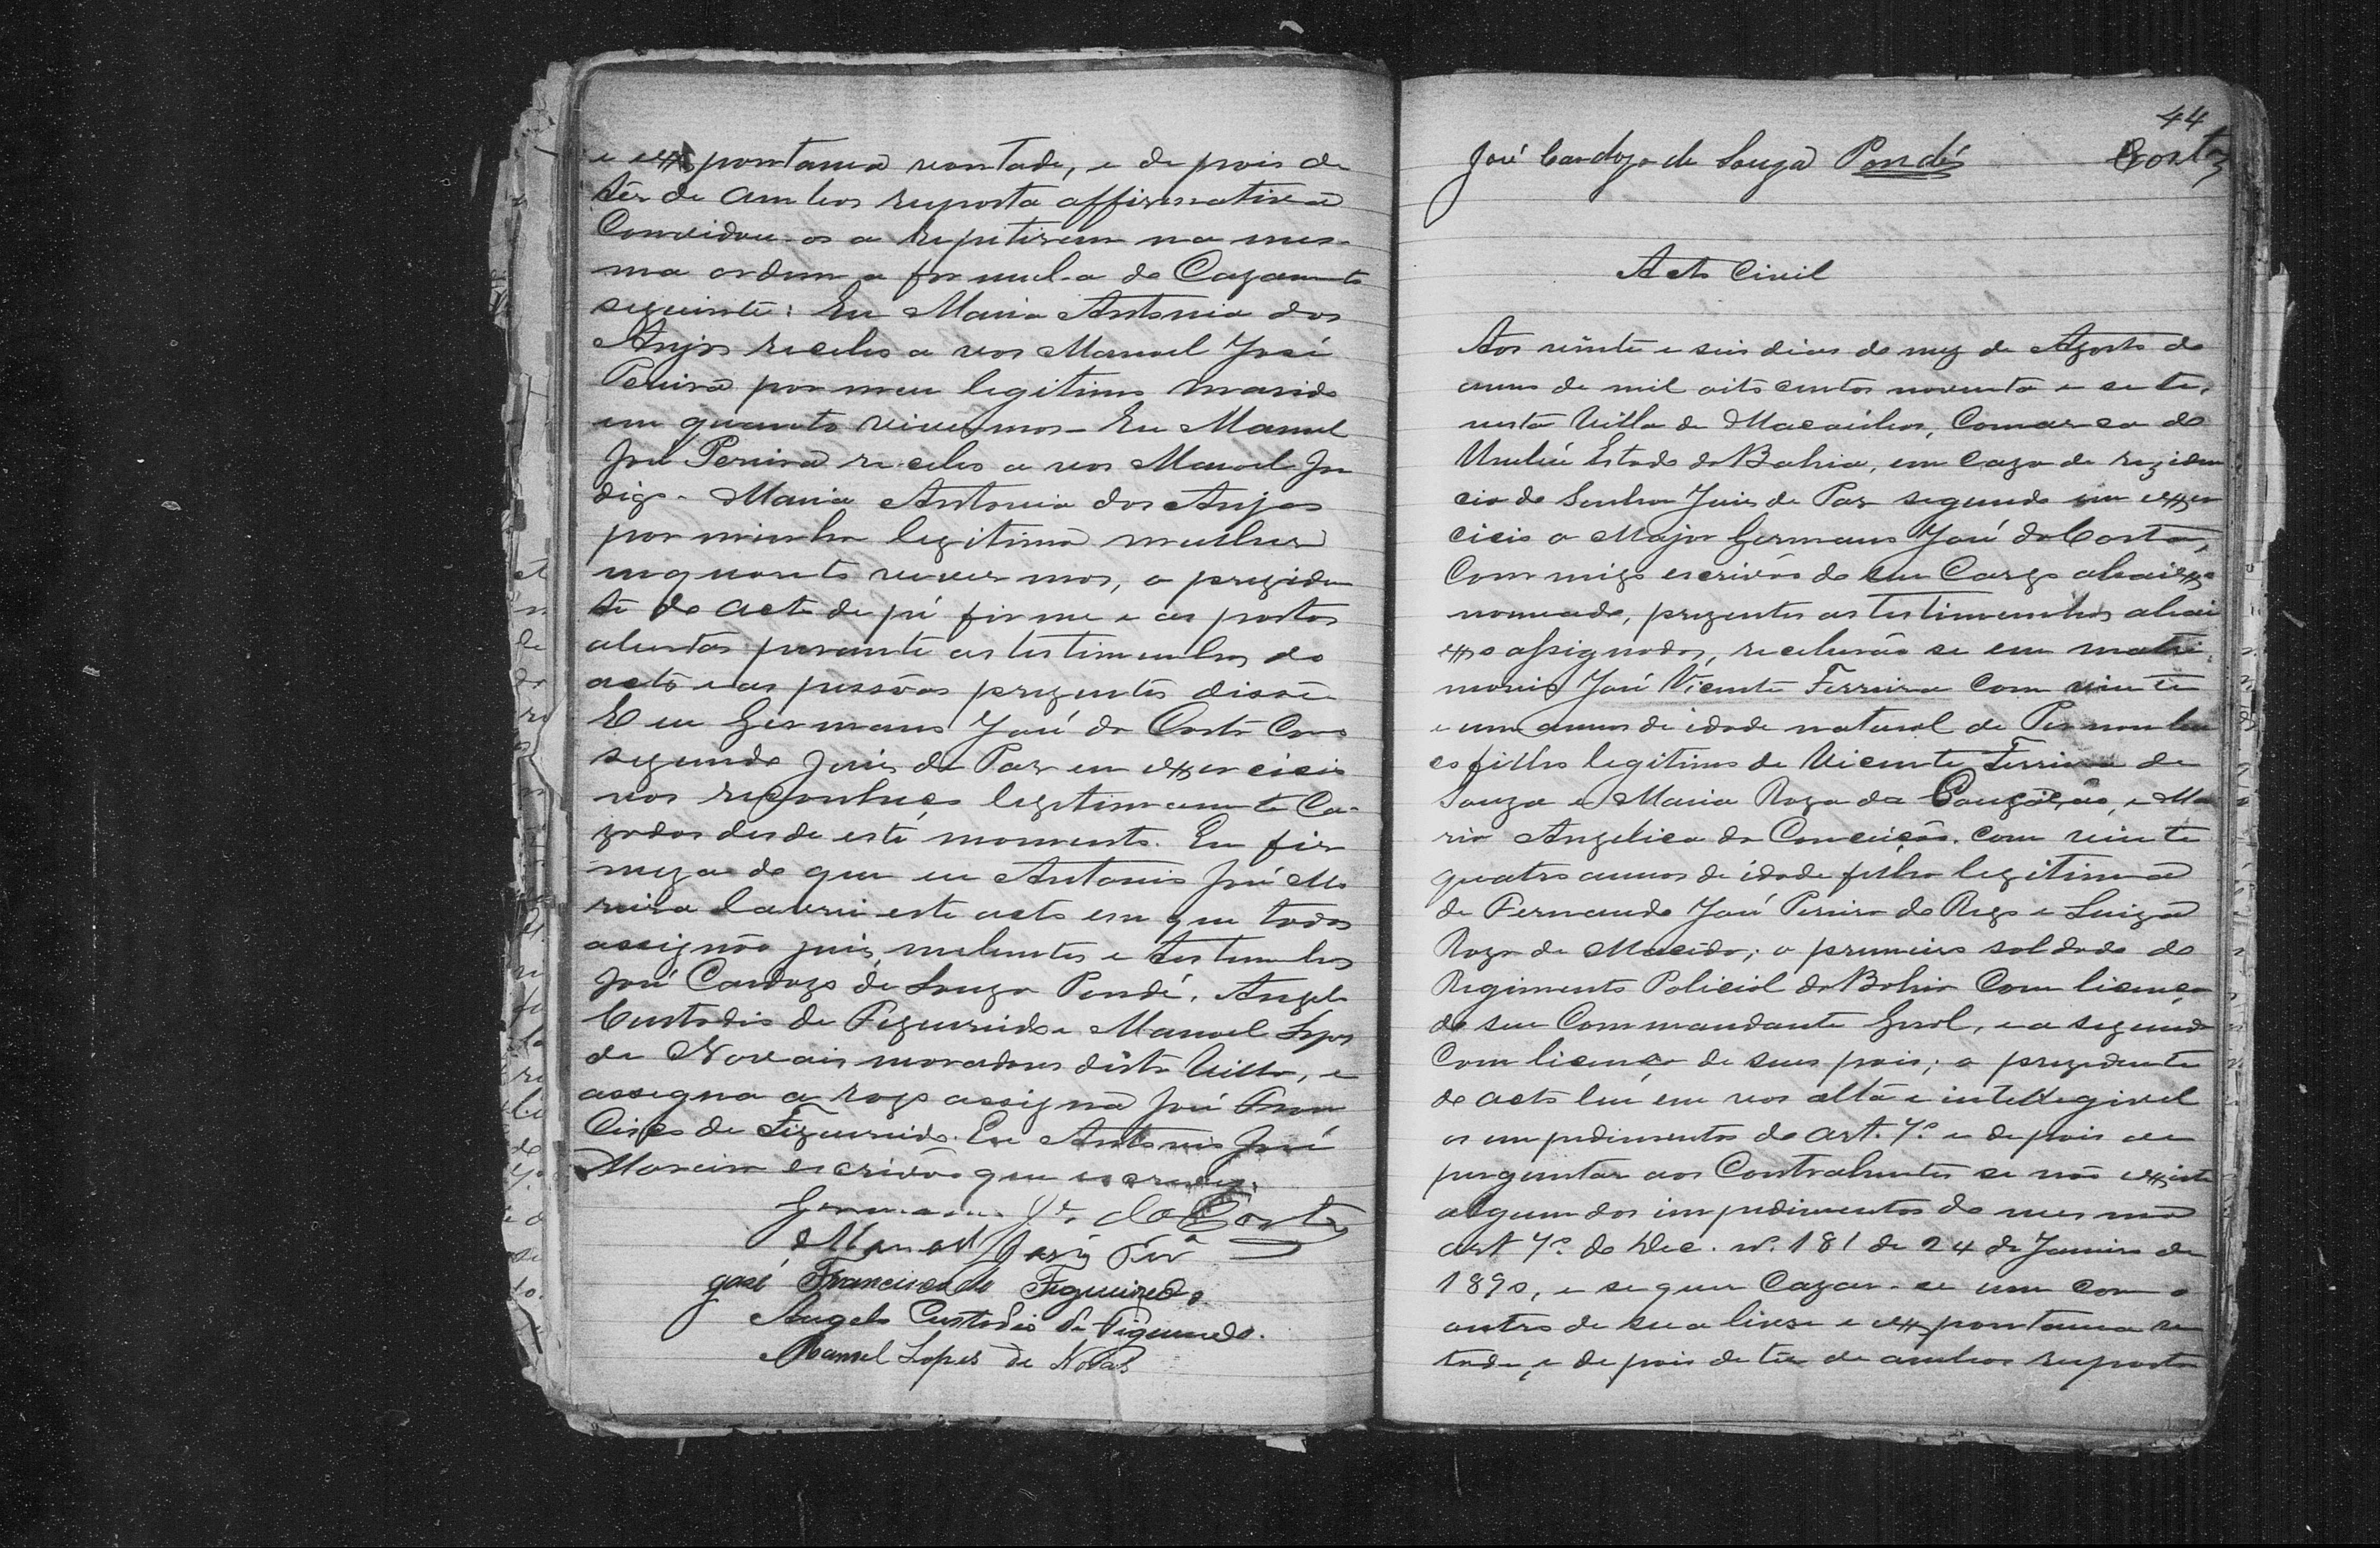 e expontanea vontade, e de pois de
ter de ambos resposta affirmativa
Convidou-os a repitirem na mes-
ma ordem a formula do Cazamento
seguinte: Eu Maria Antonia dos
Anjos recebo a vos Manoel José
Pereira por meu legitimo marido
em quanto vivermos - Eu Manoel
José Pereira recebo a vos Manoel Jo
digo - Maria Antonia dos Anjos
por minha legitima mulher
enquanto vivermos, o preziden
te do acto de pé firme e as portas
abertas perante as testimunhas do
acto e as pessôas prezentes disse
E eu Germano José da Costa Como
segundo Juis de Pas em exercicio
vos reconheço legitimamente Ca-
zados desde este momento. Em fir
meza do que eu Antonio José Mo
reira lavrei este acto em que todos
assignão juis, nubentes e testemunhas
José Cardozo de Souza Pondé, Angelo
Custodio de Figueiredo e Manoel Lopes
de Novais moradores désta Villa, e
assigna a rogo assigna José Fran
Cisco de Figueiredo. Eu Antonio José
Moreira escrivão que escrevy.
Germano Jé. da Costa
Manoel José Pera
José Francisco de Figueiredo
Angelo Custodio de Figueiredo.
Manoel Lopes de Novais
44
José Cardozo de Souza Pondé
Costa
Acto Civil
Aos vinte e seis dias do mez de Agosto do
anno de mil oito centos noventa e sete,
nesta Villa de Macaúbas, Comarca do
Urubú Estado da Bahia, em Caza de reziden
cia do Senhor Juis de Pas segundo em exer
cicio o Major Germano José da Costa,
Commigo escrivão do seu Cargo abaixo
nomeado, prezentes as testimunhas abai
xo assignados, receberão se em matri
monio José Vicente Ferreira com vinte
e um annos de idade natural de Pernambu
co filho legitimo de Vicente Ferreira de
Souza e Maria Roza da Conceição, e Ma
ria Angelica da Conceição, com vinte
quatro annos de idade filha legitima
de Fernando José Pereira do Rego e Luiza
Roza de Macêdo; o primeiro soldado do
Regimento Policial da Bahia Com licença
do seu Commandante Geral, e a segunda
Com licença de seus pais; o prezidente
do acto leu em vos alta e intellegivel
os impedimentos do art. 7º e depois de
perguntar aos Contrahentes se não existe
algum dos impedimentos do mesmo
art 7º do Dec. nº 181 de 24 de Janeiro de
1890, e se quer Cazar-se um com o
outro de sua livre e expontanea von
tade, e de pois de ter de ambos resposta